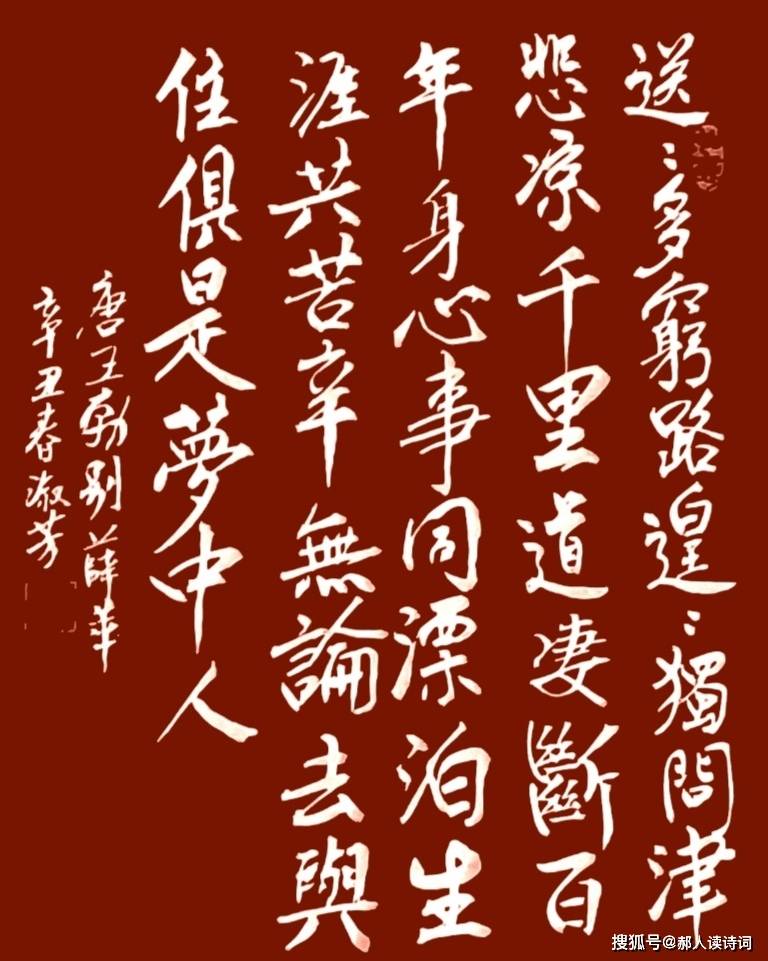 送〻多窮路遑〻獨問津
悲凉千里道凄斷百
年身心事同漂泊生
涯共苦辛無論去與
住俱是夢中人
唐王勃别薛華
辛丑春淑芳
搜狐号@郝人读诗词